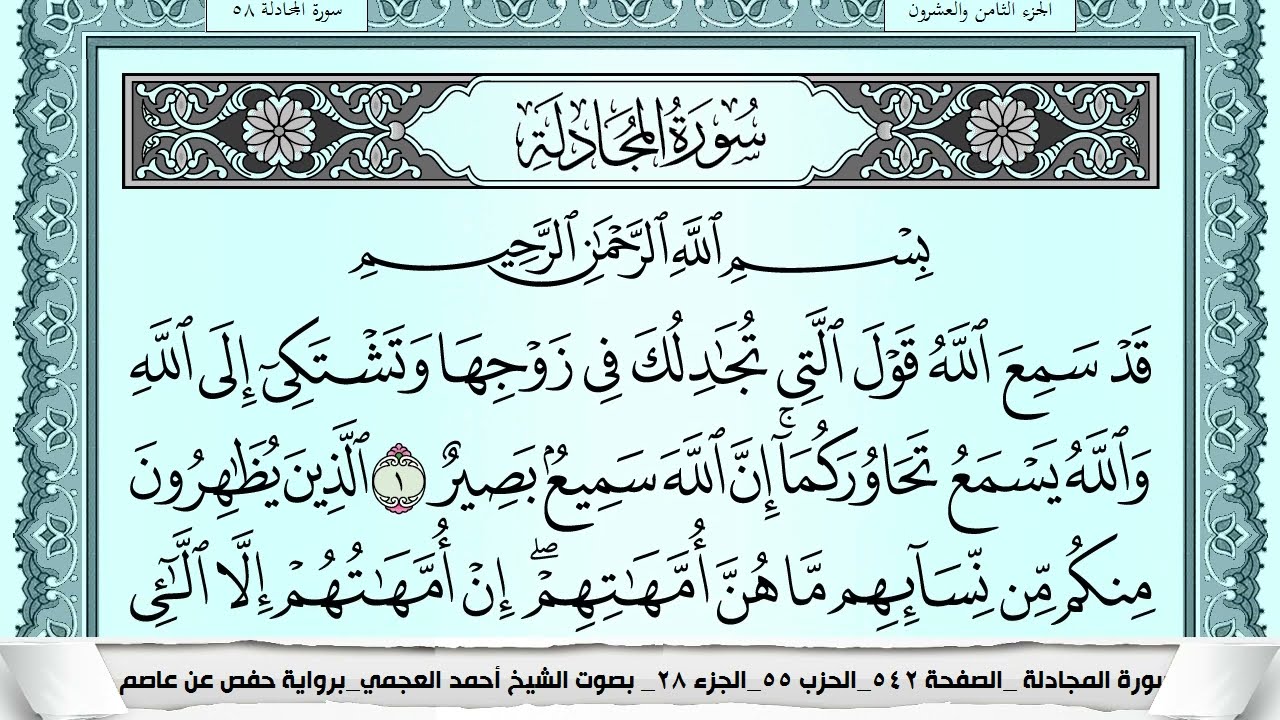 الجزء الثامن والعشرون
سورة المجادلة ٥٨
سُورَةُ المُجَادلَة
بِسْمِ ٱللَّهِ ٱلرَّحْمَٰنِ ٱلرَّحِيمِ
قَدْ سَمِعَ ٱللَّهُ قَوْلَ ٱلَّتِي تُجَٰدِلُكَ فِي زَوْجِهَا وَتَشْتَكِيٓ إِلَى ٱللَّهِ
وَٱللَّهُ يَسْمَعُ تَحَاوُرَكُمَآۚ إِنَّ ٱللَّهَ سَمِيعُۢ بَصِيرٌ ١ ٱلَّذِينَ يُظَٰهِرُونَ
مِنكُم مِّن نِّسَآئِهِم مَّا هُنَّ أُمَّهَٰتِهِمْۖ إِنْ أُمَّهَٰتُهُمْ إِلَّا ٱلَّٰٓـِٔي
سورة المجادلة _الصفحة ٥٤٢_الحزب ٥٥_الجزء ٢٨_ بصوت الشيخ أحمد العجمي_برواية حفص عن عاصم